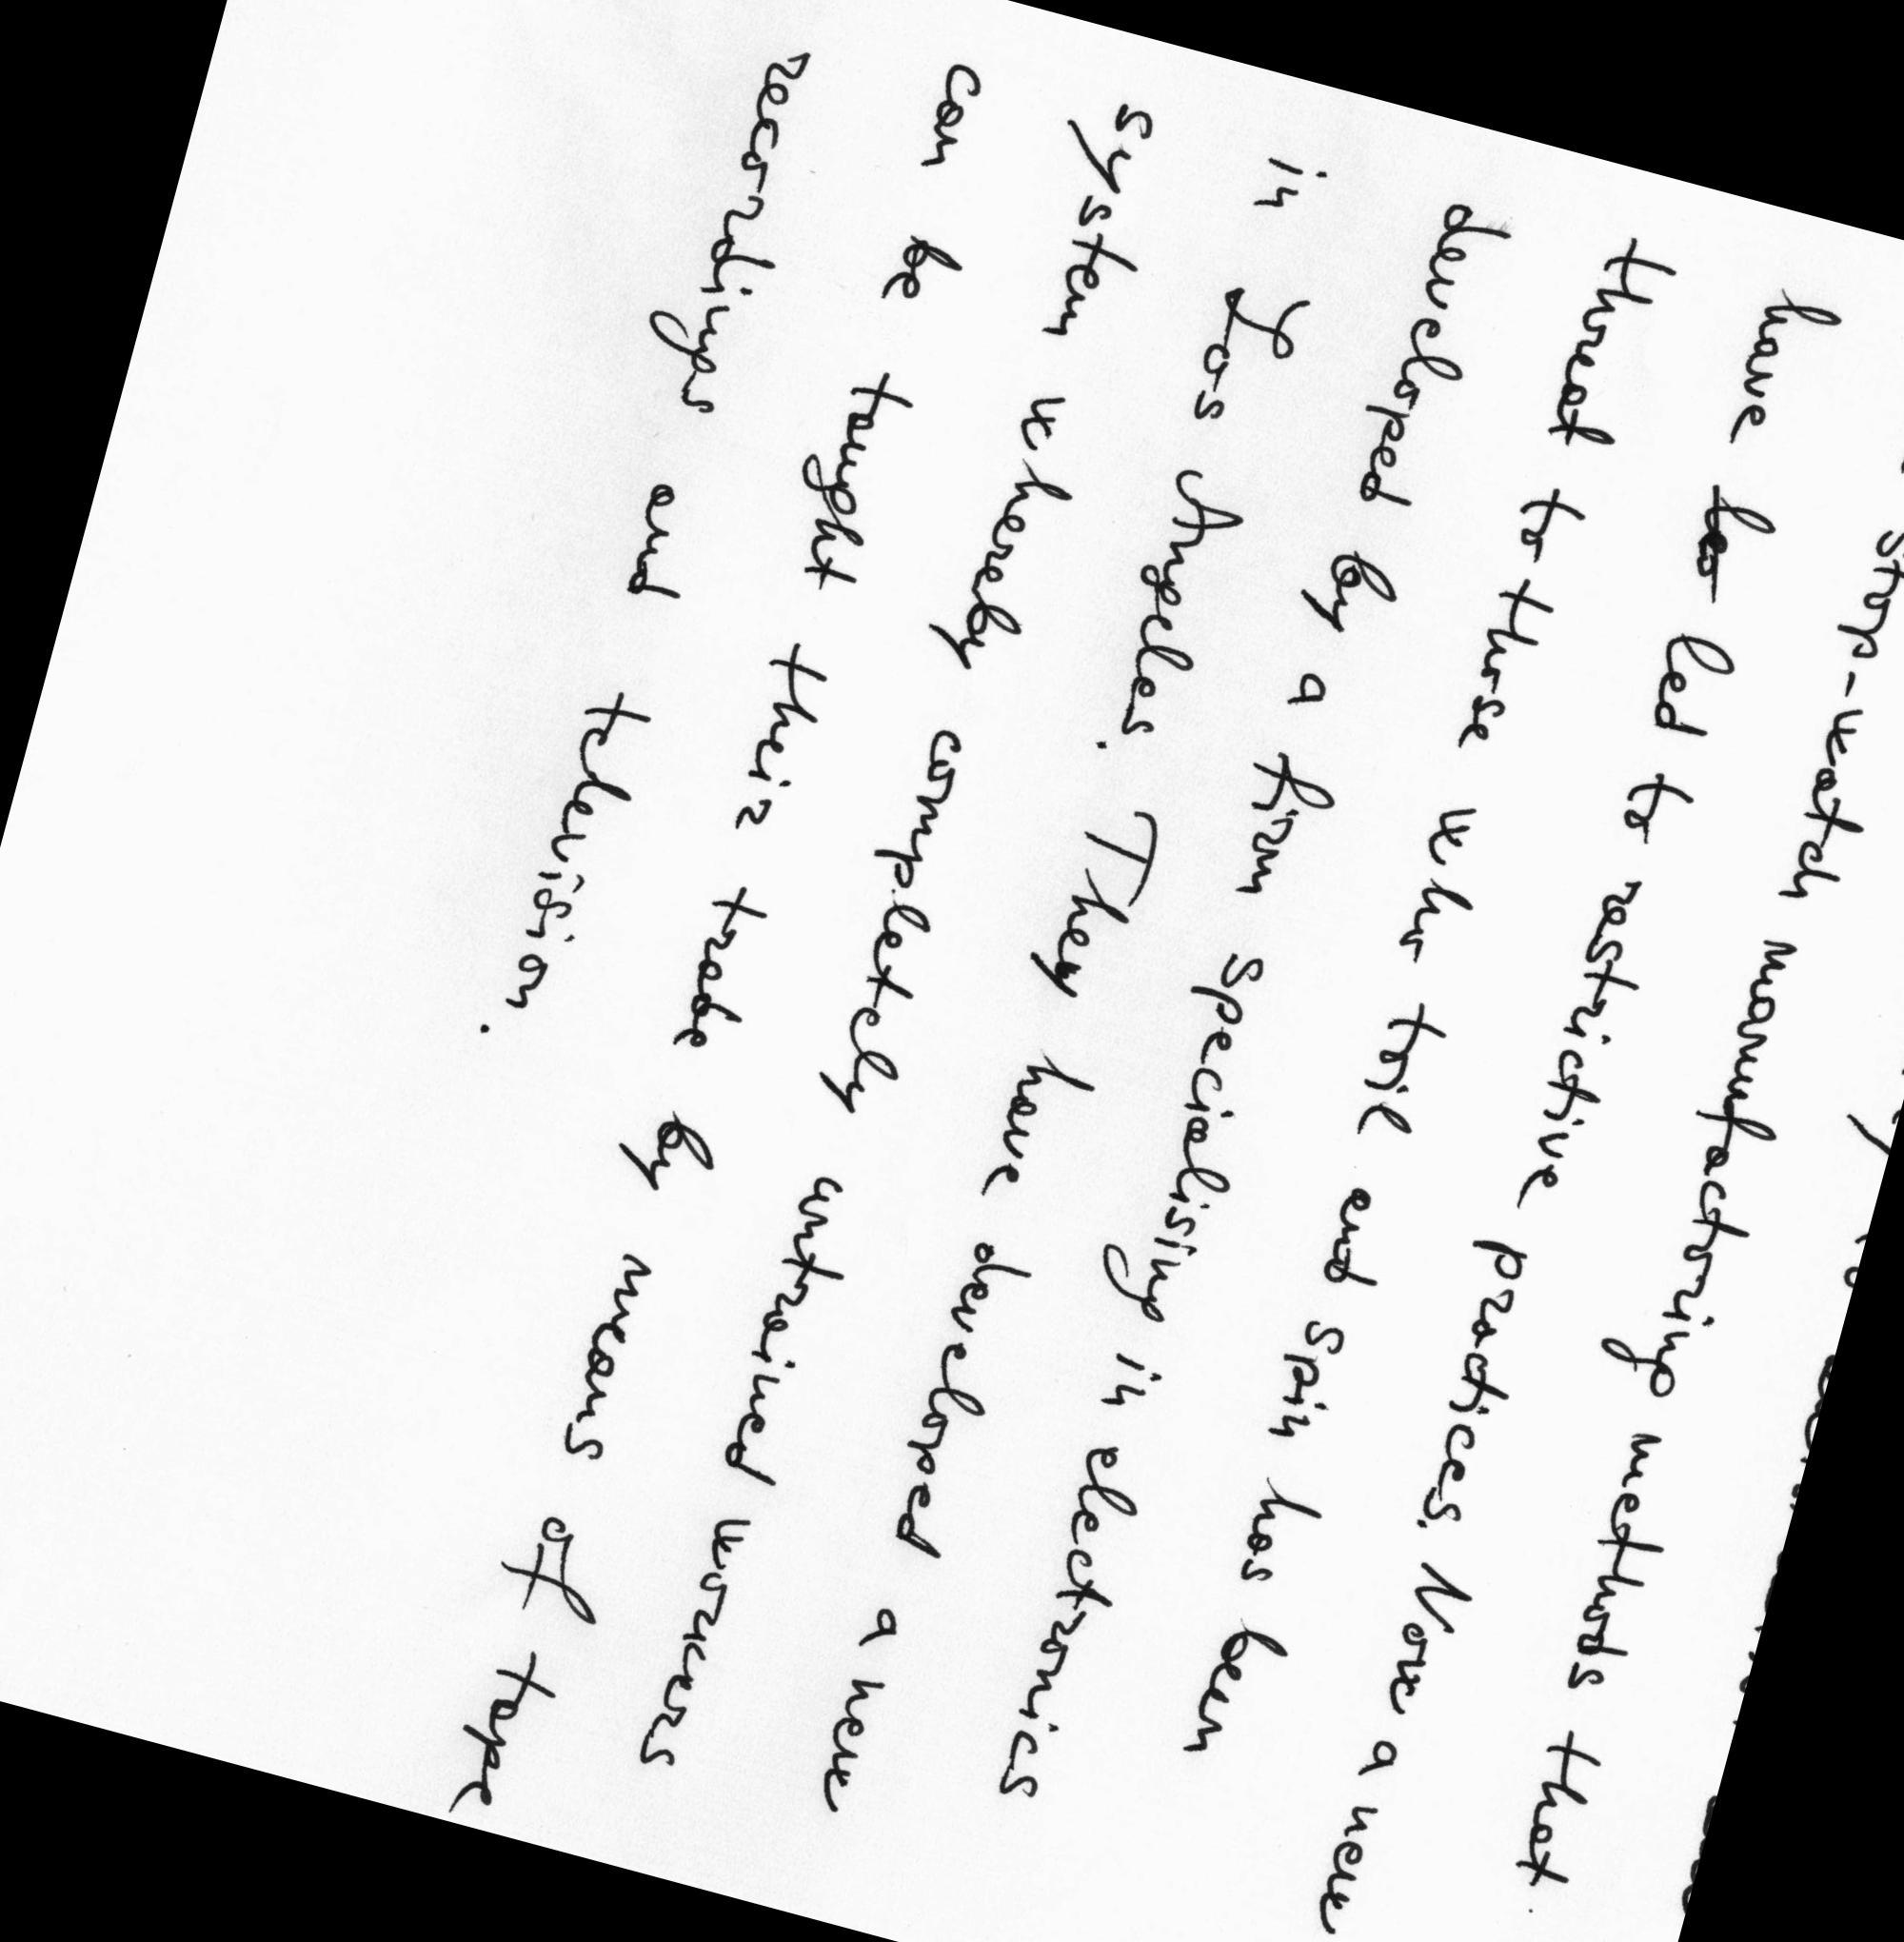 stop-watch manufactoring methods that
have led to restrictive practices. Now a new
threat to those who toil and spin has been
developed by a firm specialising in electronics
in Los Angeles. They have developed a new
system whereby completely untrained workers
can be taught their trade by means of tape
recordings and television.